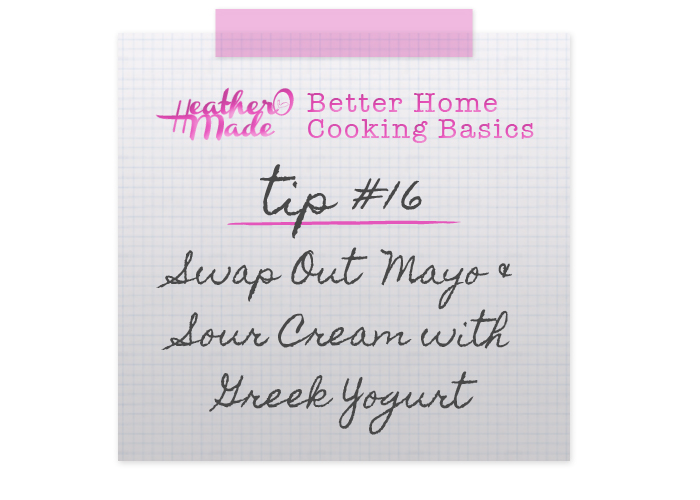 HeatherO Made
Better Home
Cooking Basics
tip #16
Swap Out Mayo &
Sour Cream with
Greek Yogurt